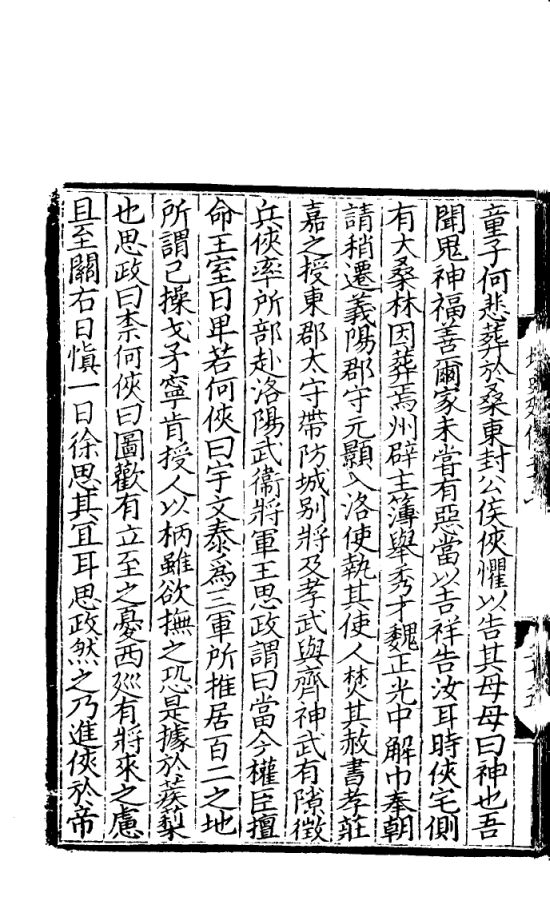 童子何悲葬於桑東封公侯俠懼以告其母母曰神也吾
聞鬼神福善爾家未嘗有惡當以吉祥告汝耳時俠宅側
有大桑林因葬焉州辟主簿舉秀才魏正光中解巾奉朝
請稍遷義陽郡守元顥入洛使執其使人焚其赦書孝莊
嘉之授東郡太守帶防城别將及孝武與齊神武有隙徵
兵俠率所部赴洛陽武衞將軍王思政謂曰當今權臣擅
命王室日卑若何俠曰宇文泰爲三軍所推居百二之地
所謂己操戈矛寧肯授人以柄雖欲撫之恐是據於蒺梨
也思政曰柰何俠曰圖歡有立至之憂西廵有將來之慮
且至關右日慎一日徐思其宜耳思政然之乃進俠於帝